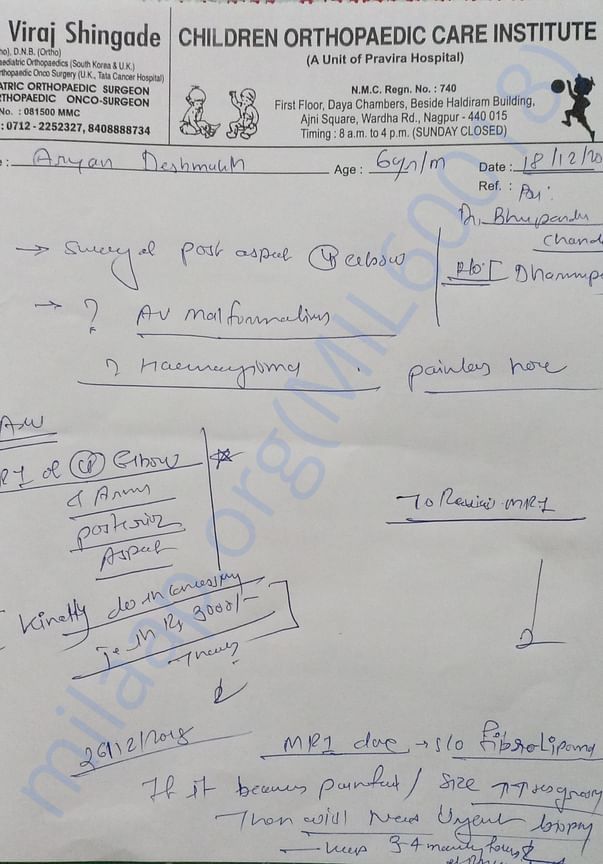 Viraj Shingade
ho), D.N.B. (Ortho)
aediatric Orthopaedics (South Korea & U.K.)
rthopaedic Onco Surgery (U.K., Tata Cancer Hospital)
ATRIC ORTHOPAEDIC SURGEON
THOPAEDIC ONCO-SURGEON
No. : 081500 MMC
: 0712 - 2252327, 8408888734
CHILDREN ORTHOPAEDIC CARE INSTITUTE
(A Unit of Pravira Hospital)
N.M.C. Regn. No. : 740
First Floor, Daya Chambers, Beside Haldiram Building,
Ajni Square, Wardha Rd., Nagpur - 440 015
Timing : 8 a.m. to 4 p.m. (SUNDAY CLOSED)
: Aryan Deshmukh Age : 6yr/m Date : 18/12/20
Ref. :
Dr. Bhupendra
Chand
→ post aspect elbow
→ ? AV malformation
? Haemangioma painless now
Adv
RI of Elbow
& Arm
posterior
Aspect
To Review MRI
Kindly do in concession
ie in Rs 3000/-
Thanks
26/12/2018
MRI done → s/o Fibrolipoma
If it becomes painful / size ↑↑
Then will need Urgent biopsy
3-4 monthly
milaap.org(MIL600018)